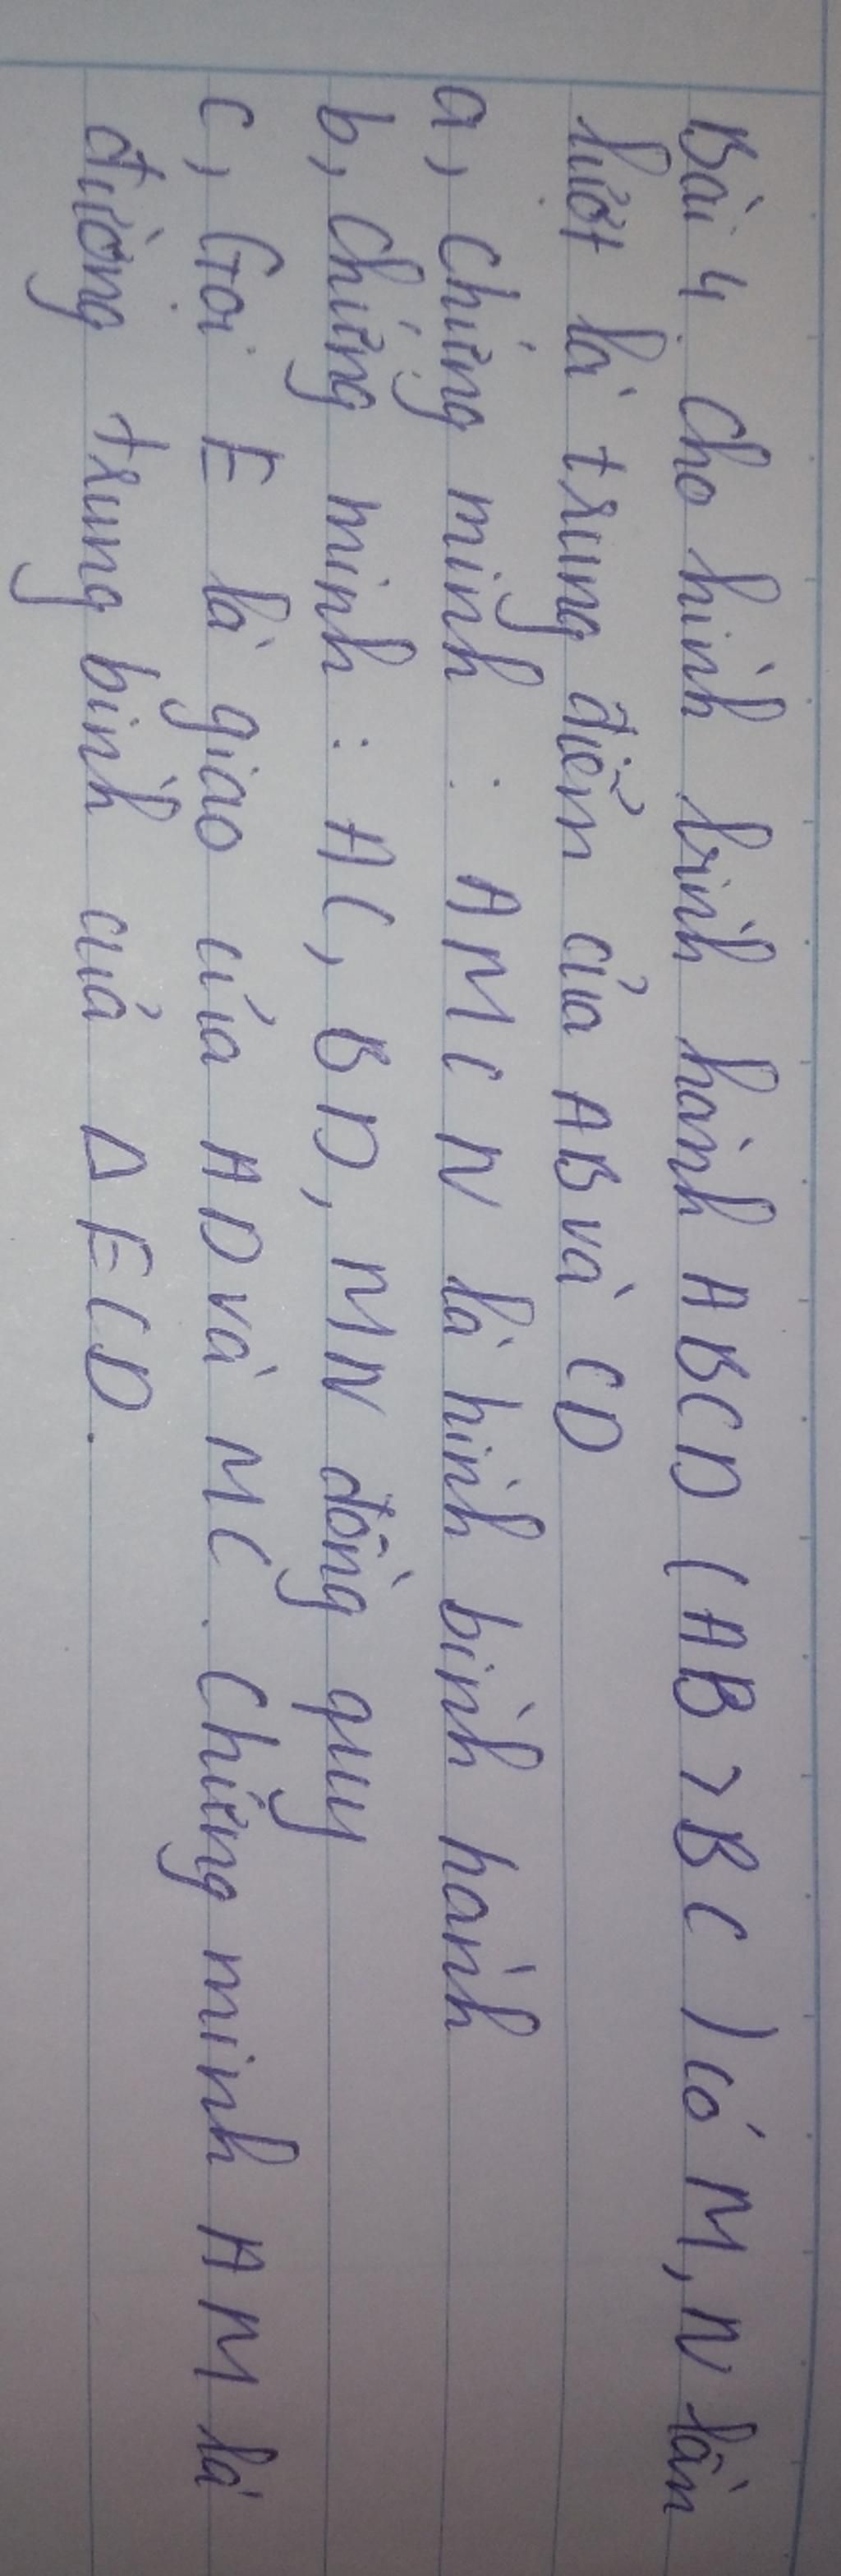 Bài 4. Cho hình bình hành ABCD (AB > BC) có M, N lần
lượt là trung điểm của AB và CD
a, Chứng minh : AMCN là hình bình hành
b, Chứng minh : AC, BD, MN đồng quy
c, Gọi E là giao của AD và MC. Chứng minh AM là
đường trung bình của Δ ECD.